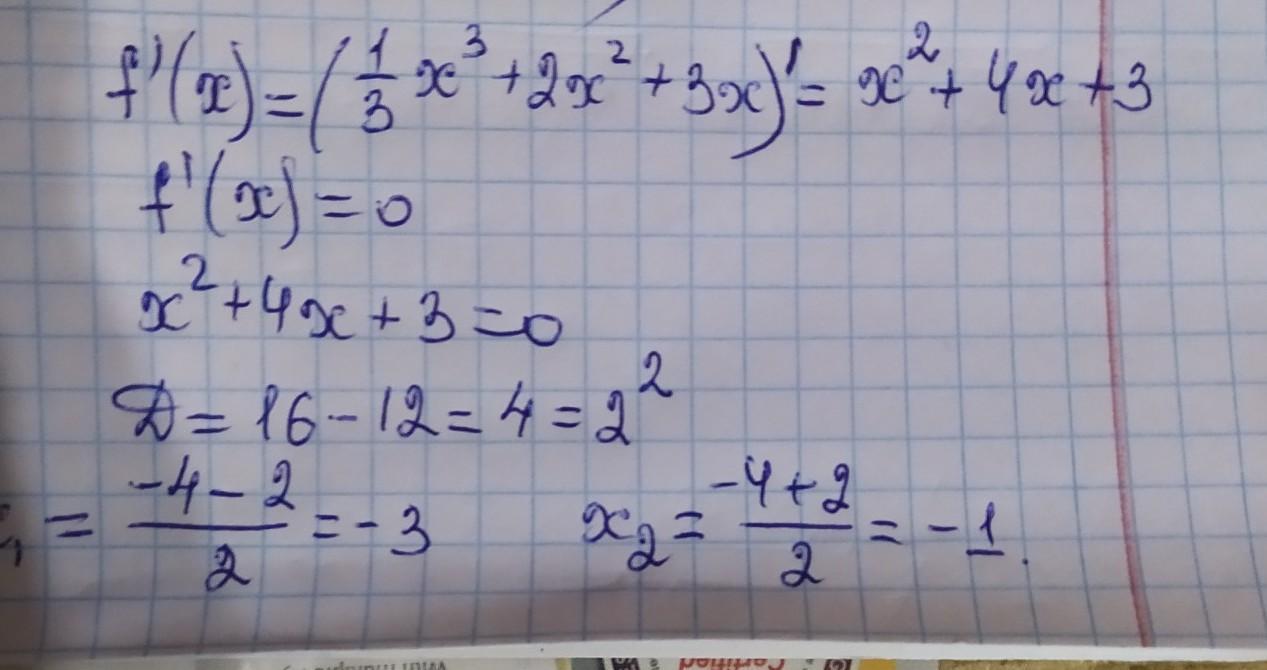 f'(x) = (1/3 x³ + 2x² + 3x)' = x² + 4x + 3
f'(x) = 0
x² + 4x + 3 = 0
D = 16 - 12 = 4 = 2²
₁ = (-4 - 2)/2 = -3    x₂ = (-4 + 2)/2 = -1.
Certified